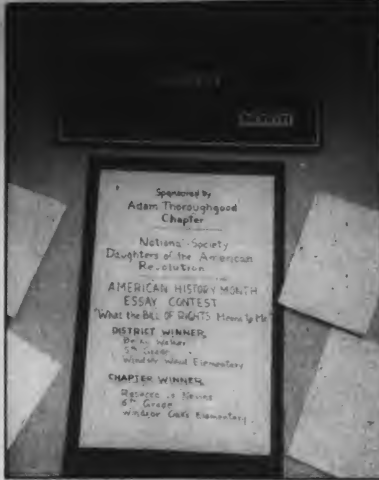 Sponsored by
Adam Thoroughgood
Chapter
National Society
Daughters of the American
Revolution
AMERICAN HISTORY MONTH
ESSAY CONTEST
"What the BILL OF RIGHTS Means to Me"
DISTRICT WINNER
Walker
5th Grade
Windsor Wood Elementary
CHAPTER WINNER
Nevins
Grade
Windsor Oaks Elementary